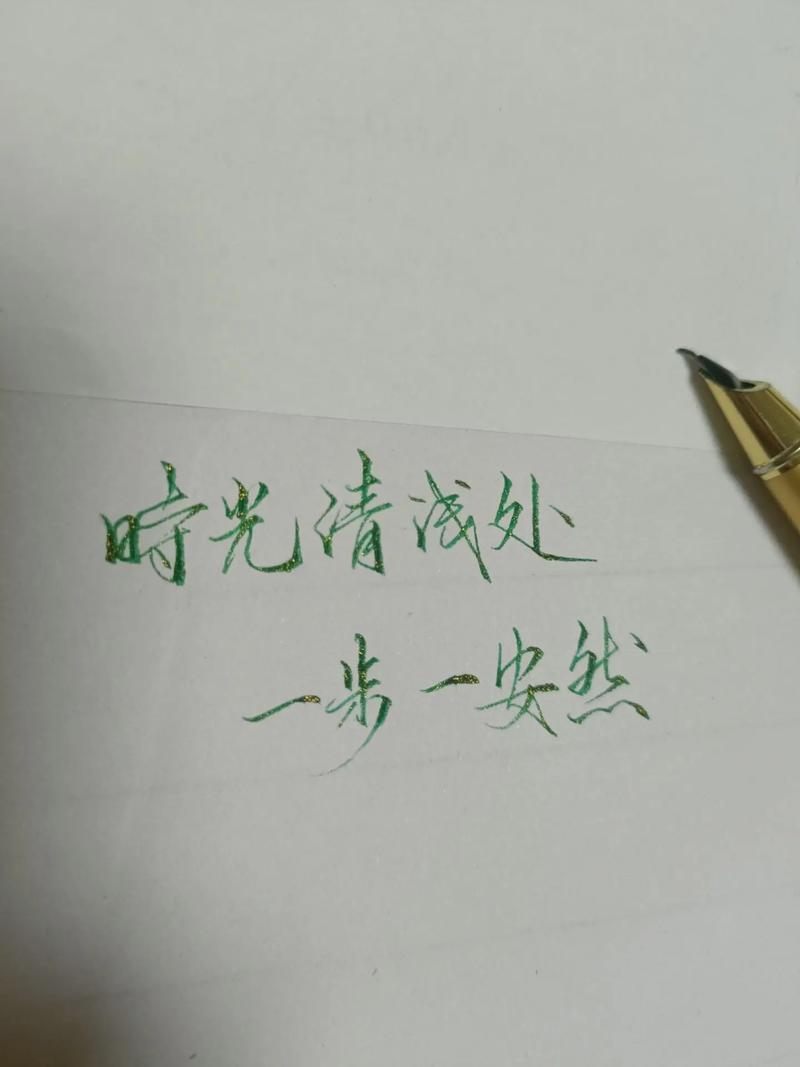 時光清浅处
一步一安然